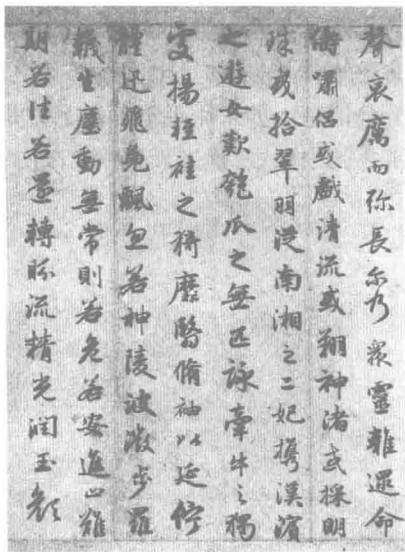 聲哀厲而弥長尓乃衆靈雜遝命
儔嘯侶或戲清流或翔神渚或採明
珠或拾翠羽從南湘之二妃携漢濱
之遊女歎匏瓜之無匹詠牽牛之獨
處揚輕袿之猗靡翳脩袖以延佇
體迅飛鳬飄忽若神陵波微步羅
襪生塵動無常則若危若安進止難
期若往若還轉眄流精光潤玉顔